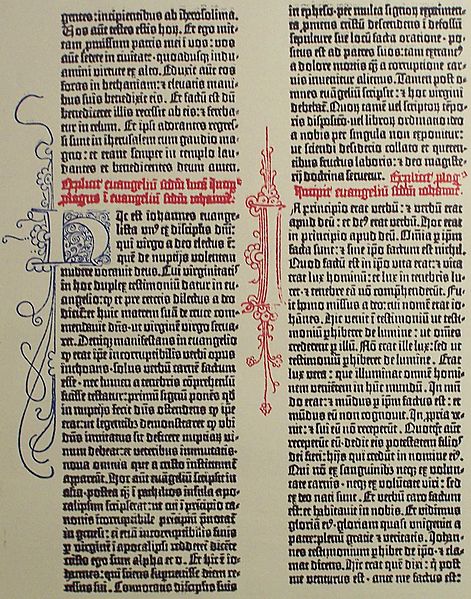 gentes: incipientibus ab iherosolima.
Vos aūt testes estis hoȝ. Et ego mittam
pmissum patris mei ī vos: vos
aūt sedete in civitate: quoadusqȝ induamini
virtute ex alto. Eduxit aūt eos
foras in bethaniam: et elevatis manibus
suis benedixit eis. Et factū est dū
benediceret illis recessit ab eis: et ferebatur
in celum. Et ipsi adorantes regressi
sunt in iherusalem cum gaudio
magno: et erant semper in templo laudantes
et benedicentes deum amen.
Explicit evangeliū scdm lucā Incipit
prologus ī evangeliū scdm iohannē.
Hic est iohannes evangelista
un⁹ ex discipulis dni:
qui virgo a deo electus ē:
quē de nuptijs volentem
nubere vocavit deus. Cui virginitatis
in hoc duplex testimoniū datur in evangelio:
q et pre ceteris dilectus a deo
dicit: et huic matrem suā de cruce commendavit
dns: ut virginē virgo servaret.
Deniqȝ manifestans in evangelio
q erat ipe incorruptibilis verbi opus
inchoans: solus verbū carnē factum
esse: nec lumen a tenebris cōprehensū
fuisse testatur: primū signū ponēs qd
in nuptijs fecit dns ostendens q ipe
erat: ut legentibus demonstraret q ubi
dns invitatus sit deficere nuptiaȝ vinum
debeat: et veteribus immutatis
nova omnia que a cristo instituunt
appareāt. Hoc autē evangeliū scripsit in
asia: postea q ī pathmos insula apocalipsim
scripserat: ut cui ī principio canonis
incorruptibile prīcipiū pnotat
in genesi: ei etiā incorruptibilis finis
p virginē ī apocalipsi redderet dicente
cristo ego sum alpha et o. Et hic ē iohannes:
qui sciens supvenisse diem recessus
sui. Convocatis discipulis suis
in epheso: per multa signoȝ experimenta
pmens cristū descendens ī defossū
sepulture sue locū facta oratione: positus
est ad patres suos: tam extrane⁹
a dolore mortis q a corruptione carnis
invenitur alienus. Tamen post omnes
evangeliū scripsit: et hoc virgini
debebat. Quoȝ tamē vel scriptoȝ tēporis
dispositō: vel libroȝ ordinatio ideo
a nobis per singula non exponitur:
ut sciendi desiderio collato et querentibus
fructus laboris: et deo magisterij
doctrina servetur. Explicit plog⁹
Incipit evangeliū scdm iohannē.
In principio erat verbū: et verbū erat
apud deū: et de⁹ erat verbū. Hoc erat
in principio apud deū. Omīa p ipm
facta sunt: et sine ipo factum est nichil.
Quod factū est in ipo vita erat: et vita
erat lux hominū: et lux in tenebris lucet:
et tenebre eā nō comprehenderūt. Fuit
homo missus a deo: cui nomē erat iohānes.
Hic venit ī testimoniū ut testimoniū
phiberet de lumine: ut omēs
crederent p illū. Nō erat ille lux: sed ut
testimoniū phiberet de lumine. Erat
lux vera: que illuminat omnē hominem
venientem in hūc mundū. In mūdo
erat: et mūdus p ipm factus est: et
mūdus eū non cognovit. In ppria venit:
et sui eū nō receperūt. Quotqȝ autē
receperūt eū: dedit eis potestatem filios
dei fieri: hijs qui credūt in nomine ei⁹.
Qui nō ex sanguinibȝ neqȝ ex voluntate
carnis: neqȝ ex volūtate viri: sed
ex deo nati sunt. Et verbū caro factum
est: et habitavit in nobis. Et vidimus
gloriā ei⁹: gloriam quasi unigeniti a
patre: plenū gratie et veritatis. Iohannes
testimonium phibet de ipo: et clamat
dicens. Hic erat quē dixi: q post
me venturus est: ante me factus est: